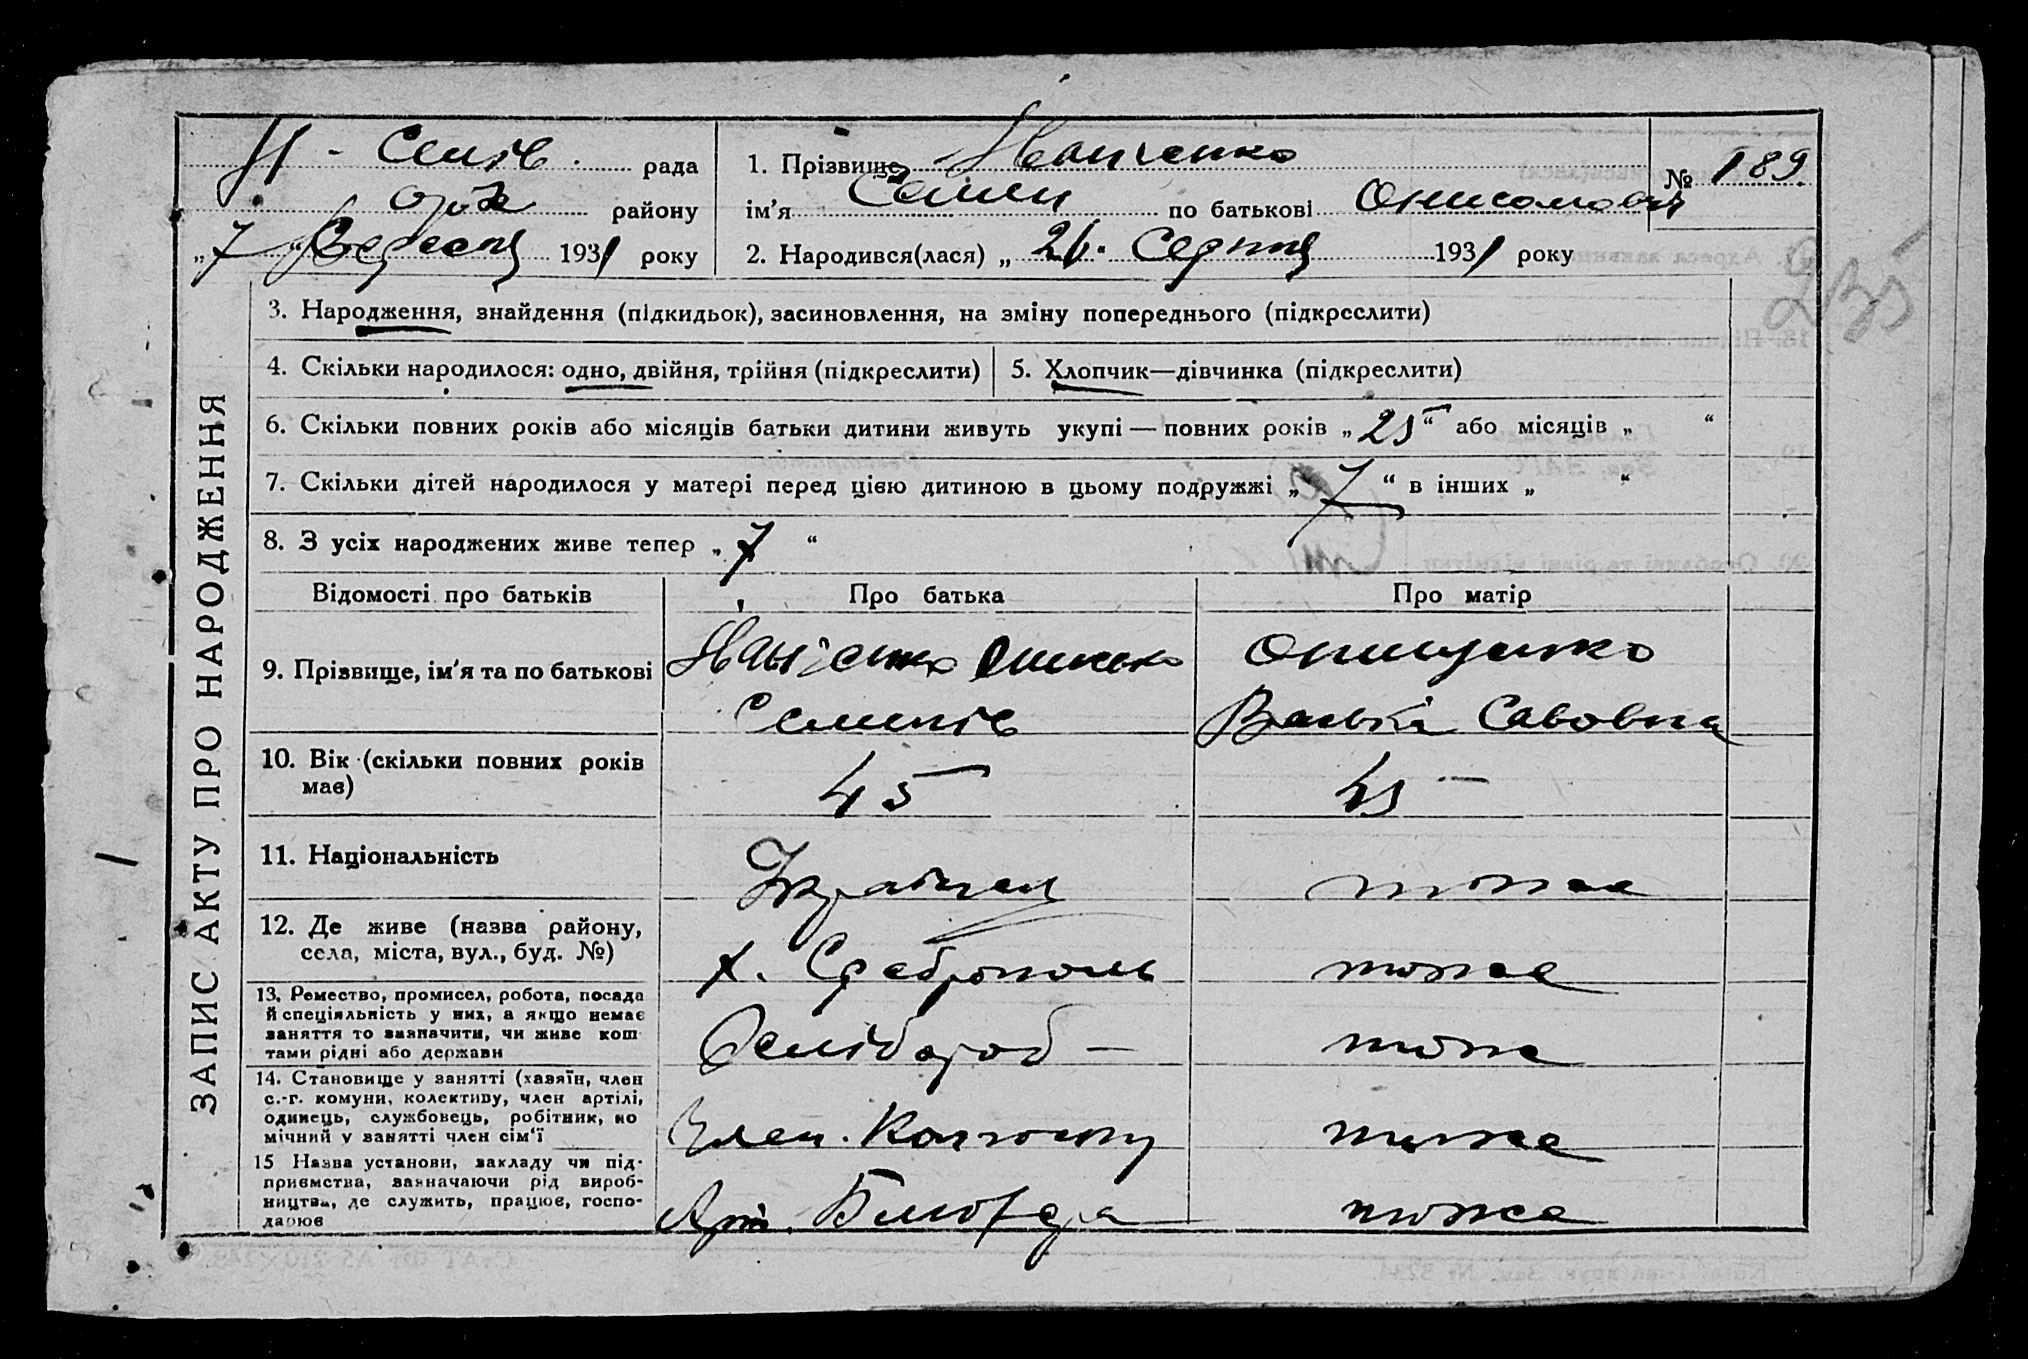 рада
1. Прізвище Іванченко
№ 189
району
ім'я Семен по батькові Онисомович
„7“ Вересня 1931 року
2. Народився(лася) „26“ Серпня 1931 року
235
ЗАПИС АКТУ ПРО НАРОДЖЕННЯ
3. Народження, знайдення (підкидьок), засиновлення, на зміну попереднього (підкреслити)
4. Скільки народилося: одно, двійня, трійня (підкреслити)
5. Хлопчик—дівчинка (підкреслити)
6. Скільки повних років або місяців батьки дитини живуть укупі — повних років „25“ або місяців „ “
7. Скільки дітей народилося у матері перед цією дитиною в цьому подружжі „7“ в інших „ “
8. З усіх народжених живе тепер „7“
Відомості про батьків
Про батька
Про матір
9. Прізвище, ім'я та по батькові
Іванченко
Семенів
Онищенко
Савовна
10. Вік (скільки повних років має)
45
45
11. Національність
Українец
тоже
12. Де живе (назва району, села, міста, вул., буд. №)
х.
тоже
13. Ремество, промисел, робота, посада й спеціяльність у них, а якщо немає заняття то зазначити, чи живе коштами рідні або держави
тоже
14. Становище у занятті (хазяїн, член с.-г. комуни, колективу, член артілі, одинець, службовець, робітник, помічний у занятті член сім'ї
Член. Колгоспу
тоже
15 Назва установи, закладу чи підприємства, зазначаючи рід виробництва, де служить, працює, господарює
Арт. Блюхера
тоже